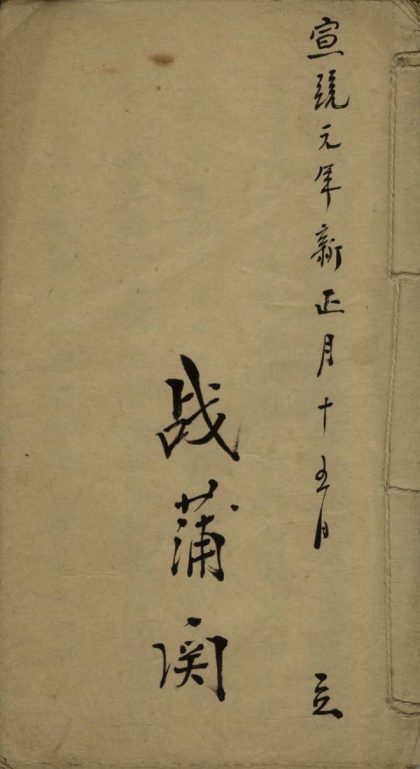 宣統元年新正月十五日 立
战蒲関